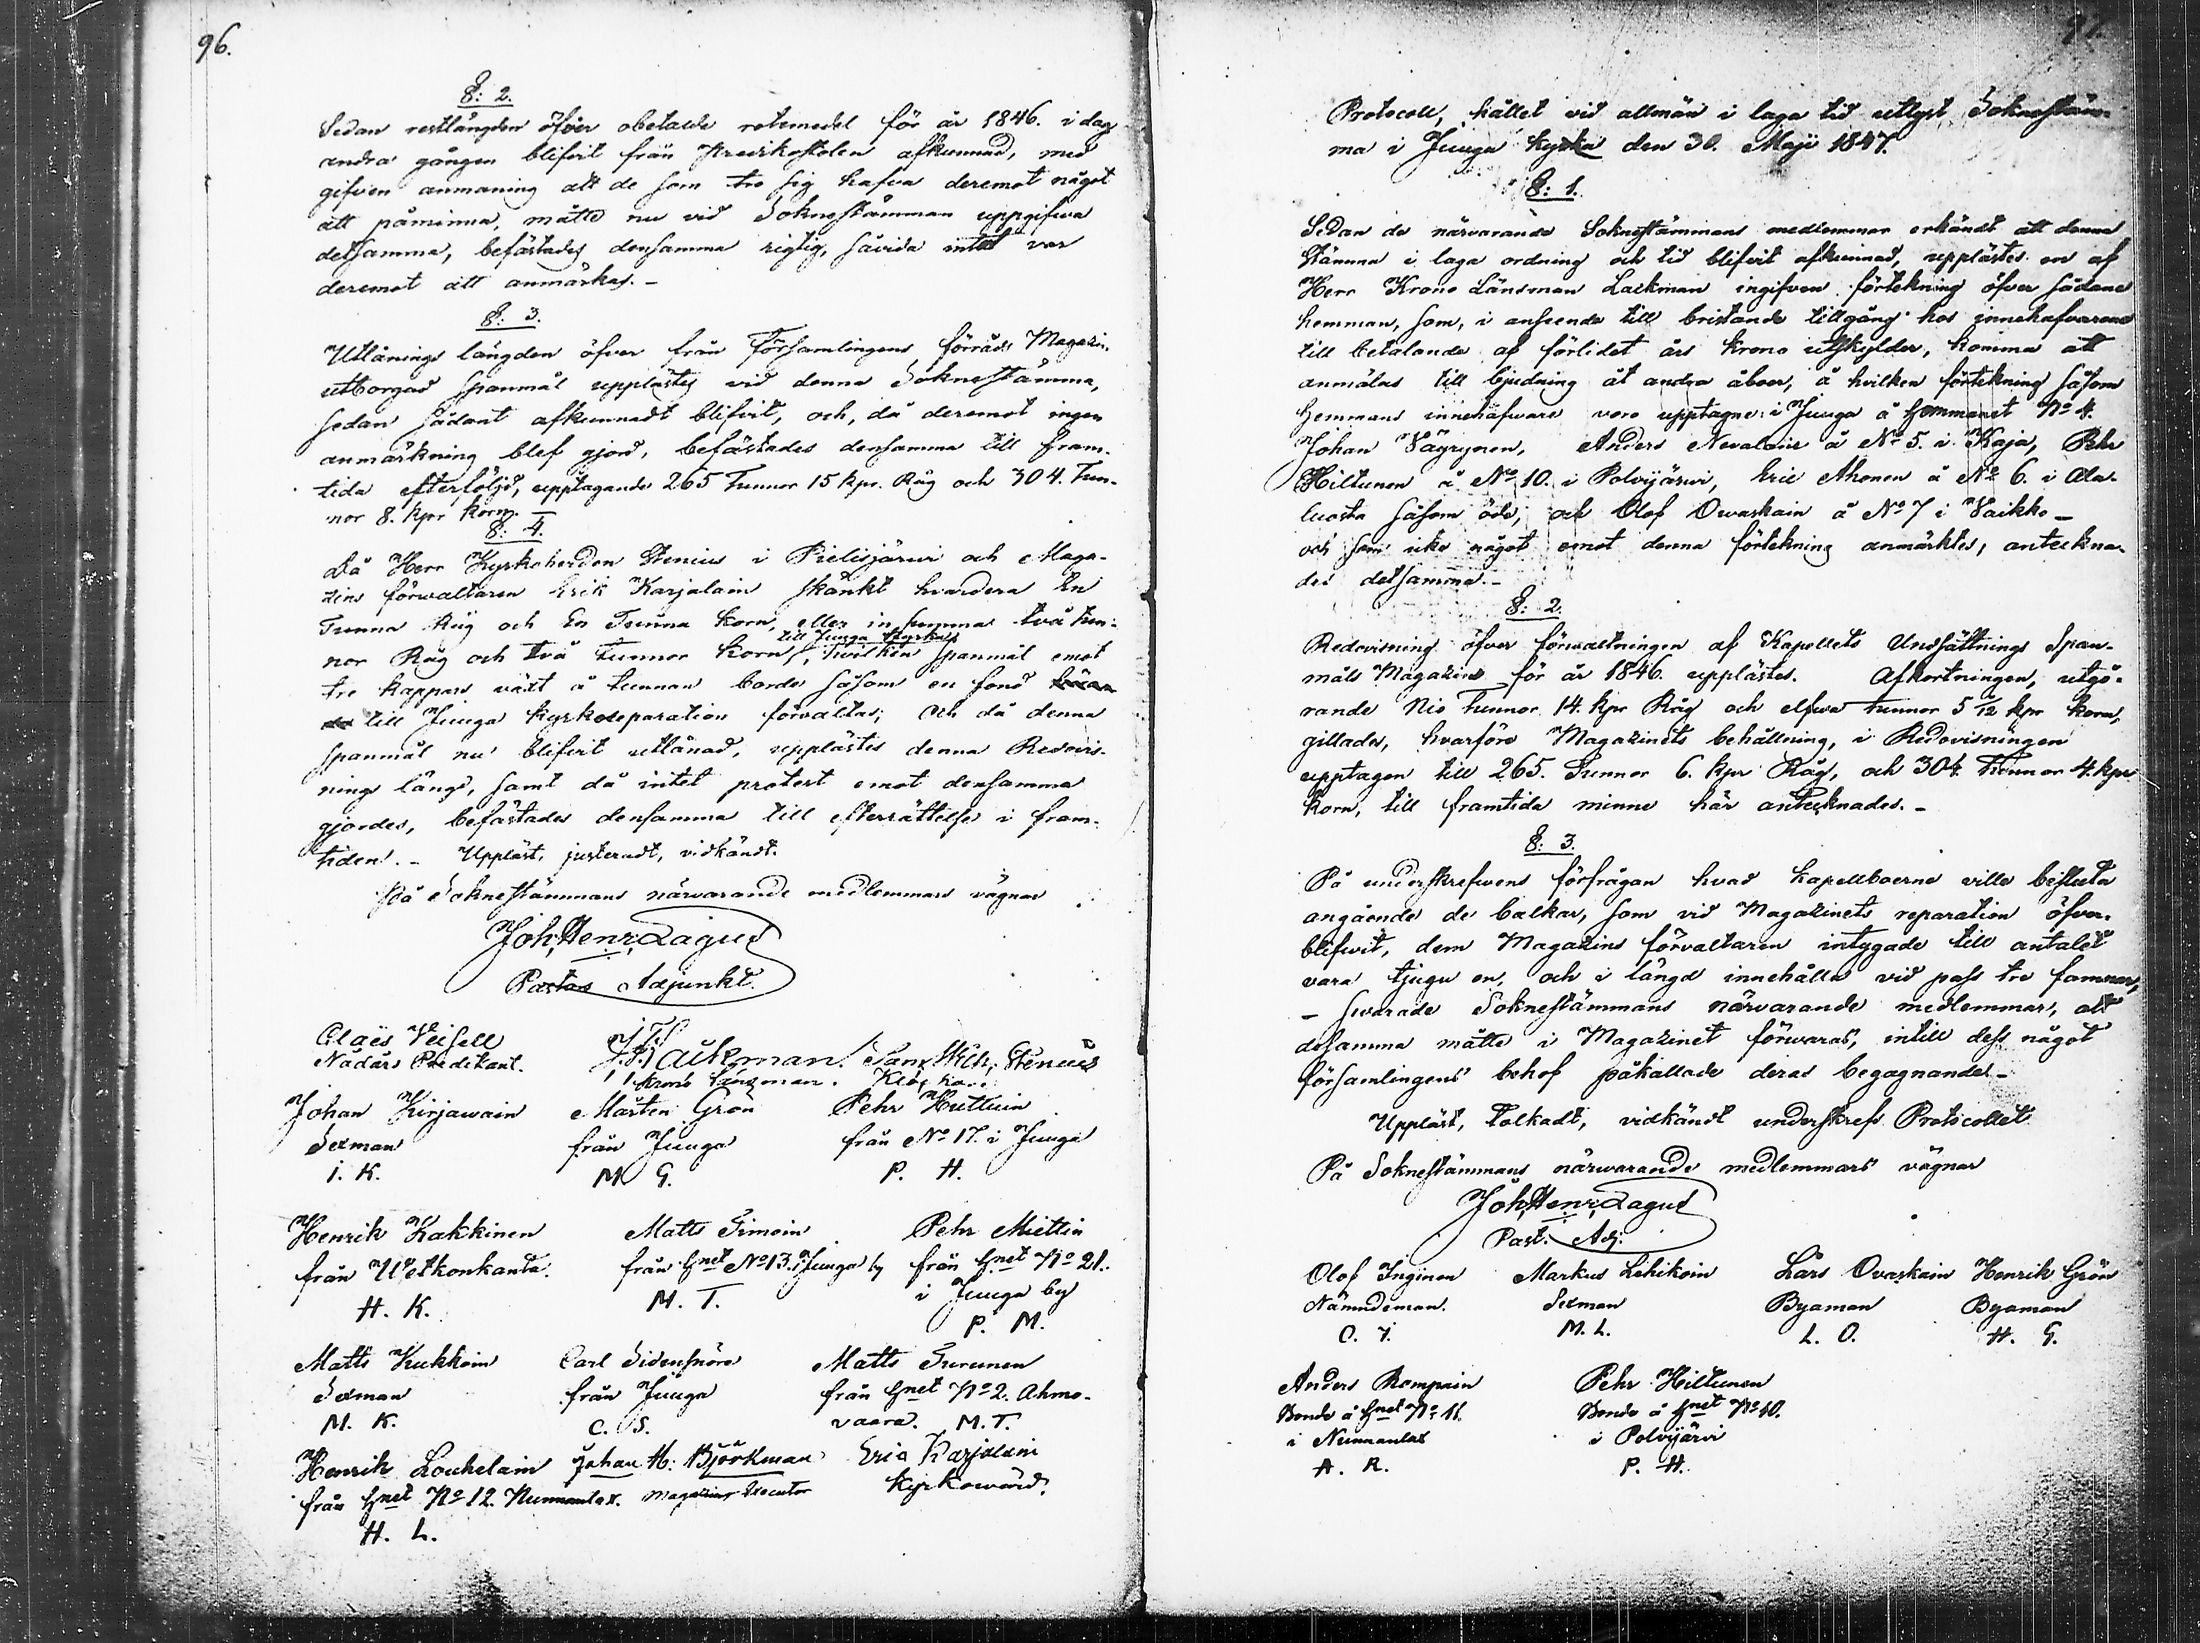 96.
§: 2.
Sedan restlängden öfver obetalde rotemedel för år 1846. i dag
andra gången blifvit från Predikostolen afkunnad, med
gifven anmaning att de som tro sig hafva deremot något
att påminna, måtte nu vid Soknestämman uppgifva
detsamma, befästades densamma rigtig, såvida intet var
deremot att anmärkas. -
§: 3.
Utlånings längden öfver från Församlingens förråds Magazin
utborgad Spanmål upplästes vid denna Soknestämma,
sedan sådant afkunnadt blifvit, och, då deremot ingen
anmärkning blef gjord, befästades densamma till fram-
tida efterföljd, upptagande 265 Tunnor 15 kpr. Råg och 304. Tun-
nor 8. kpr korn. -
§: 4.
Då Herr Kyrkoherden Stenius i Pielisjärvi och Maga-
zins förvaltaren Erik Karjalain skänkt hvardera En
Tunna Råg och En Tunna Korn, eller in summa två tun-
till Juuga Kyrka
nor Råg och två Tunnor Korn, hvilken Spanmål emot
tre kappars växt å tunnan borde såsom en fond
till Juuga Kyrkoreparation förvaltas; Och då denna
spanmål nu blifvit utlånad, upplästes denna Redovis-
nings längd, samt då intet protest emot densamma
gjordes, befästades densamma till efterrättelse i fram-
tiden. - Uppläst, justeradt, vidkändt.
På Soknestämmans närvarande medlemmars vägnar
Joh. Henr. Lagus
Pastors Adjunkt.
Claës Veisell J. F. Lackman. Sam. Wilh. Stenius
Nådårs Predikant. Krono Länsman.
Johan Kirjawain Mårten Grön Pehr Huttuin
Sexman från Juuga från No 17. i Juuga
I. K. M. G. P. H.
Henrik Kakkinen Matts Timoin Pehr Miettin
från Wetkonkanta. från Hnet No 13. i Juuga by från Hnet No 21.
H. K. M. T. i Juuga by
P. M.
Matts Kukkoin Carl Sidensnöre Matts Turunen
Sexman från Juuga från Hnet No 2. Ahmo-
M. K. C. S. vaara. M. T.
Henrik Loukelain Johan H: Björkman Eric Karjalain
från Hnet No 12. Nunnanlax. Magazins Executor Kyrkovärd.
H. L.
Protocoll, hållet vid allmän i laga tid utlyst Soknestäm-
ma i Juuga kyrka den 30. Maji 1847.
§: 1.
Sedan de närvarande Soknestämmans medlemmar erkändt att denna
Stämma i laga ordning och tid blifvit afkunnad, upplästes en af
Herr Krono Länsman Lackman ingifven förtekning öfver sådane
hemman, som, i anseende till bristande tillgång hos innehafvarene
till betalande af förlidet års Krono utskylder, komma att
anmälas till bjudning åt andra åboer, å hvilken förtekning såsom
Hemmans innehafware voro upptagne: i Juuga å Hemmanet No 4.
Johan Väyrynen, Anders Nevalain å No 5. i Kaja, Pehr
Hiltunen å No 10. i Polvijärwi, Eric Ahonen å No 6. i Ala-
luosta såsom öde, och Olof Owaskain å No 7 i Vaikko -
och som icke något emot denna förtekning anmärktes, anteckna-
des detsamma. -
§: 2.
Redovisning öfver förvaltningen af Kapellets Undsättnings Span-
måls Magazine för år 1846. upplästes. Afkortningen, utgö-
rande Nio Tunnor 14. kpr Råg och elfwa Tunnor 5 1/2 kpr korn,
gillades, hvarföre Magazinets behållning, i Redovisningen
upptagen till 265. Tunnor 6. kpr Råg, och 304. Tunnor 4. kpr
korn, till framtida minne här antecknades. -
§: 3.
På underskrefwens förfrågan hvad kapellboerne ville besluta
angående de balkar, som vid Magazinets reparation öfver-
blifwit, dem Magazins förvaltaren intygade till antalet
vara tjugu en, och i längd innehålla vid pass tre famnar,
- swarade Soknestämmans närvarande medlemmar, att
desamma måtte i Magazinet förwaras, intill dess något
församlingens behof påkallade deras begagnande. -
Uppläst, tolkadt, vidkändt underskrefs Protocollet.
På Soknestämmans närwarande medlemmars vägnar
Joh. Henr. Lagus
Past. Adj.
Olof Inginen Markus Lihikoin Lars Ovaskain Henrik Grön
Nämndeman. Sexman Byaman Byaman
O. I. M. L. L. O. H. G.
Anders Rompain Pehr Hiltunen
Bonde å Hnet No 11. Bonde å Hnet No 10.
i Nunnanlax i Polvijärvi
A. R. P. H.